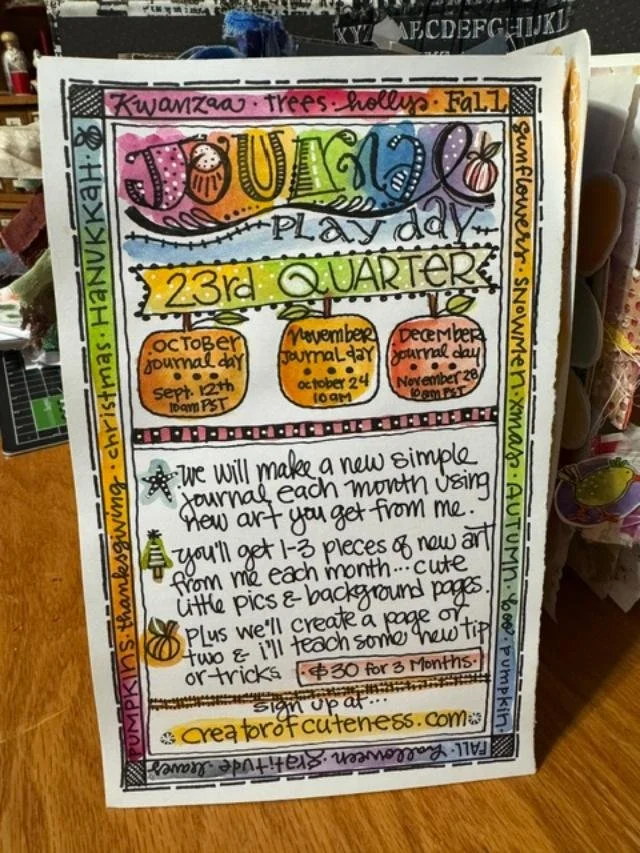 XYZ ABCDEFGHIJKL
Kwanzaa · trees · hollys · Fall
JOURNAL
PLay day
23rd QUARTER
OCTOBER
journal day
Sept. 12th
10am PST
November
Journal day
october 24
10 AM
December
journal day
November 28
10am PST
we will make a new simple
journal each month using
new art you get from me.
you'll get 1-3 pieces of new art
from me each month... cute
little pics & background pages.
PLUS we'll create a page or
two & i'll teach some new tip
or tricks
· $30 for 3 Months ·
sign up at...
creatorofcuteness.com
PUMPKINS · thanksgiving · christmas · HANUKKAH ·
sunflowers · SNOWMEN · xmas · AUTUMN · boo · PUMPKIN ·
FALL · halloween · gratitude · leaves